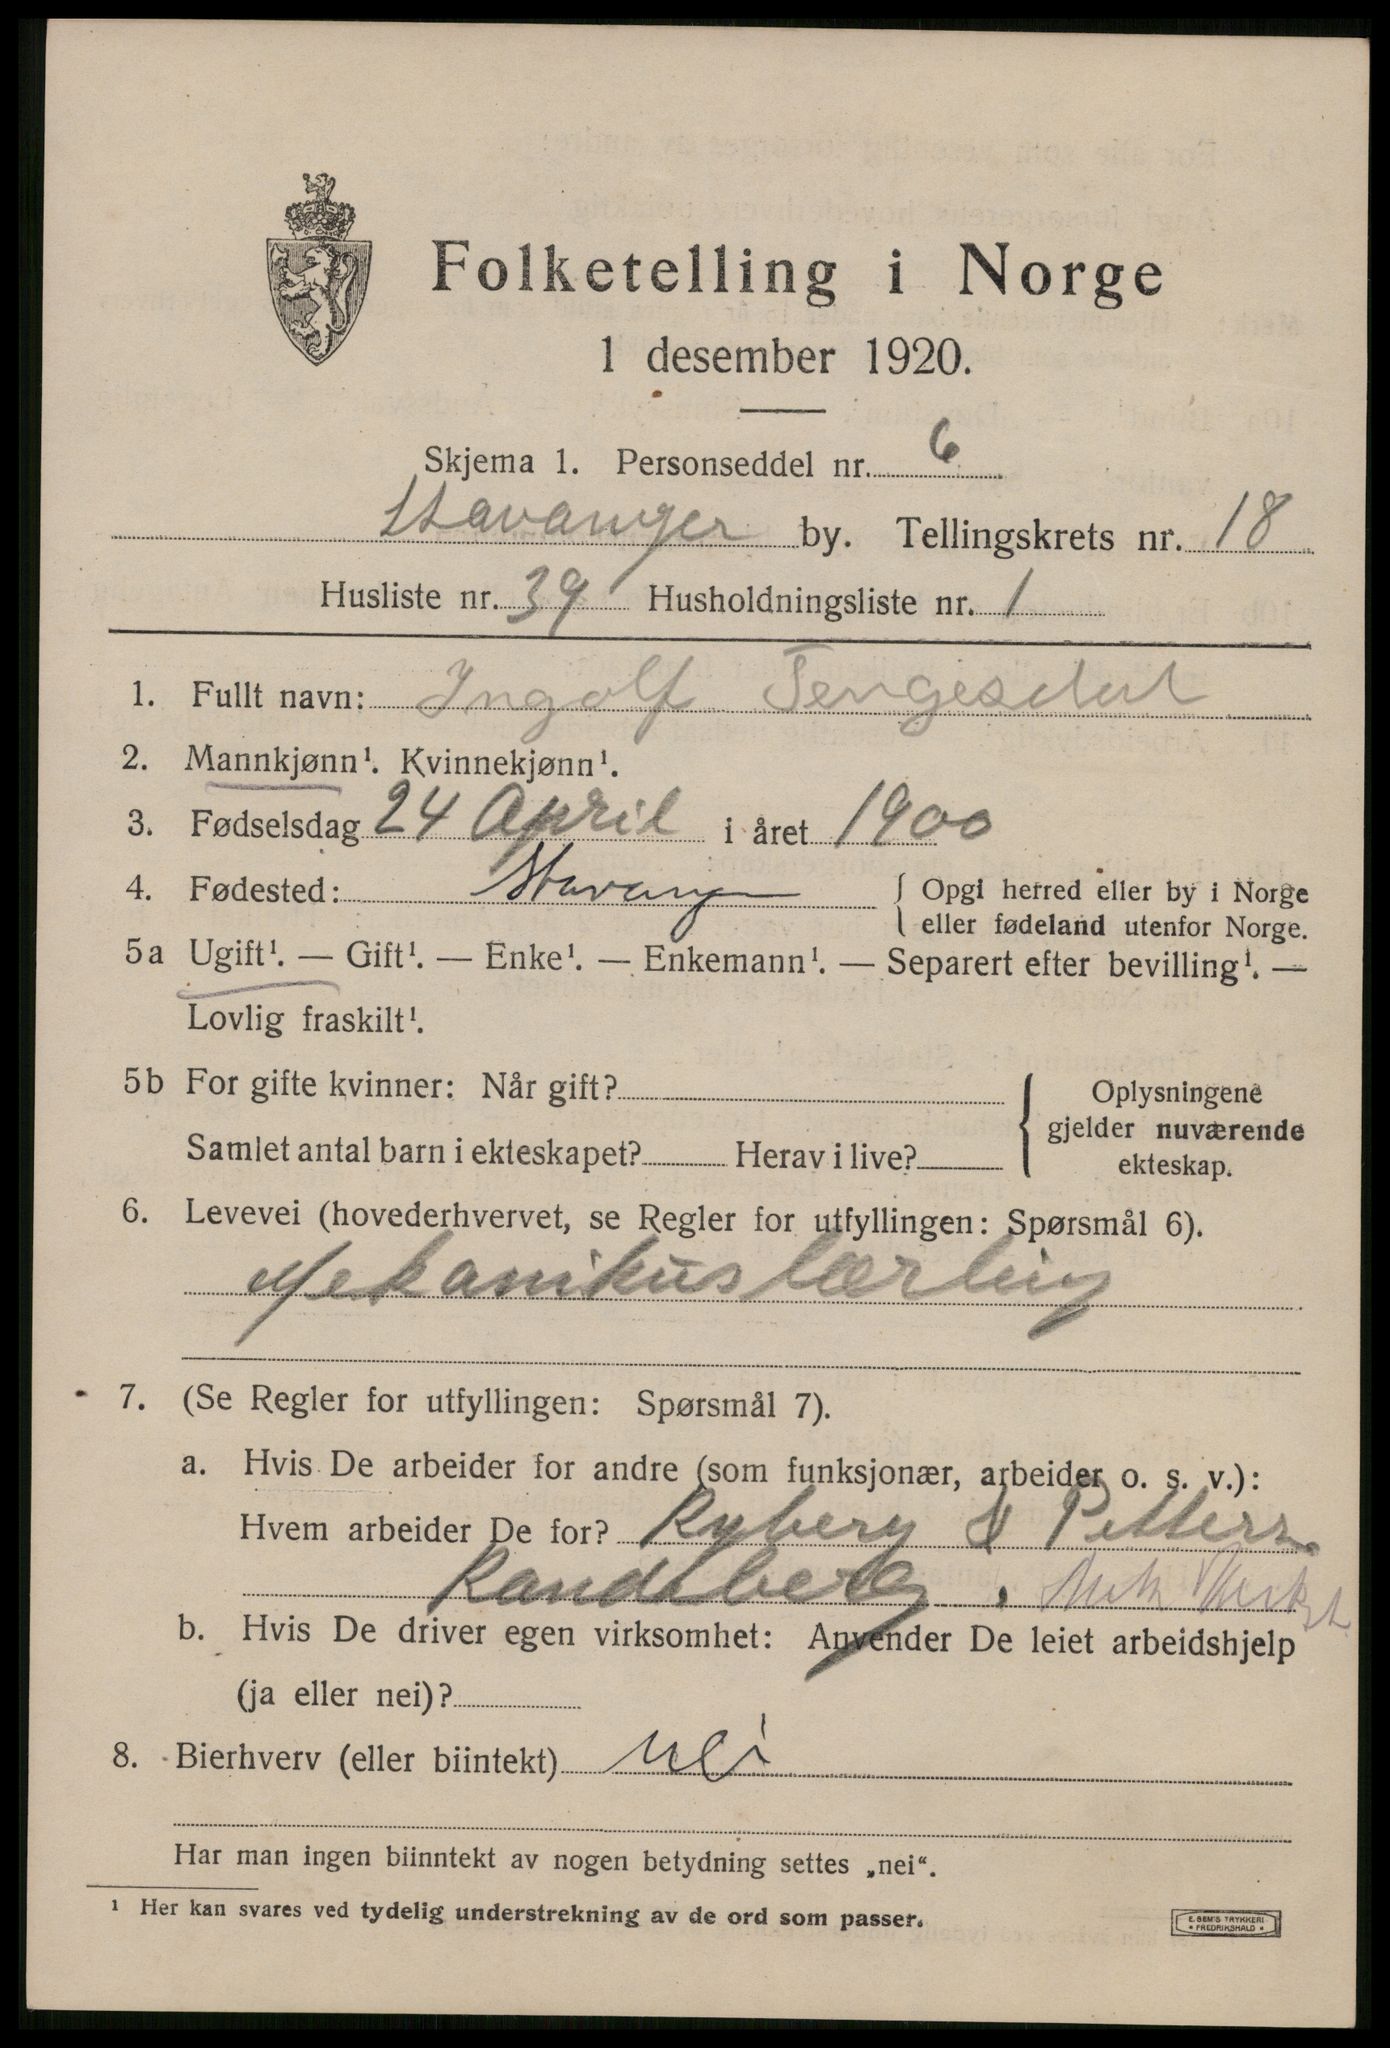 Folketelling i Norge
1 desember 1920.
Skjema 1. Personseddel nr. 6
Stavanger by. Tellingskrets nr. 18
Husliste nr. 39 Husholdningsliste nr. 1
1. Fullt navn: Ingolf Tengesdal
2. Mannkjønn¹. Kvinnekjønn¹.
3. Fødselsdag 24 April i året 1900
4. Fødested: Stavanger { Opgi herred eller by i Norge
eller fødeland utenfor Norge.
5a Ugift¹. — Gift¹. — Enke¹. — Enkemann¹. — Separert efter bevilling¹. —
Lovlig fraskilt¹.
5b For gifte kvinner: Når gift? { Oplysningene
gjelder nuværende
Samlet antal barn i ekteskapet? Herav i live?
ekteskap.
6. Levevei (hovederhvervet, se Regler for utfyllingen: Spørsmål 6).
Mekanikuslærling
7. (Se Regler for utfyllingen: Spørsmål 7).
a. Hvis De arbeider for andre (som funksjonær, arbeider o. s. v.):
Hvem arbeider De for? Ryberg &
Randeberg, Mek Verkst.
b. Hvis De driver egen virksomhet: Anvender De leiet arbeidshjelp
(ja eller nei)?
8. Bierhverv (eller biintekt) nei
Har man ingen biinntekt av nogen betydning settes „nei“.
¹ Her kan svares ved tydelig understrekning av de ord som passer.
E. SEM'S TRYKKERI
* FREDRIKSHALD *